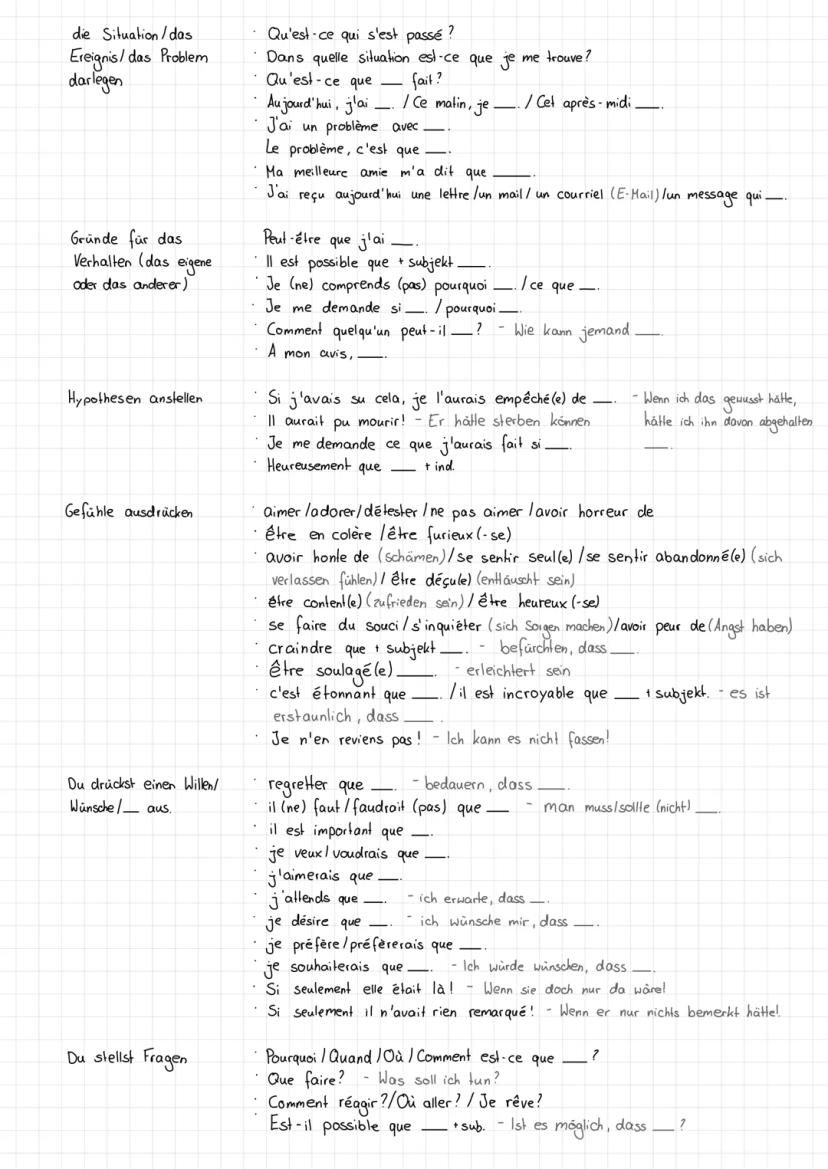 die Situation/das · Qu'est-ce qui s'est passé?
Ereignis/das Problem · Dans quelle situation est-ce que je me trouve?
darlegen · Qu'est-ce que __ fait?
· Aujourd'hui, j'ai __. / Ce matin, je __. / Cet après-midi __.
· J'ai un problème avec __.
Le problème, c'est que __.
· Ma meilleure amie m'a dit que __.
· J'ai reçu aujourd'hui une lettre/un mail/ un courriel (E-Mail)/un message qui __.
Gründe für das Peut-être que j'ai __.
Verhalten (das eigene · Il est possible que + subjekt __.
oder das anderer) · Je (ne) comprends (pas) pourquoi __. /ce que __.
· Je me demande si __. /pourquoi __.
· Comment quelqu'un peut-il __? - Wie kann jemand __.
· À mon avis, __.
Hypothesen anstellen · Si j'avais su cela, je l'aurais empêché(e) de __. - Wenn ich das gewusst hätte,
· Il aurait pu mourir! - Er hätte sterben können hätte ich ihn davon abgehalten
· Je me demande ce que j'aurais fait si __. __.
· Heureusement que __ + ind.
Gefühle ausdrücken · aimer/adorer/détester/ne pas aimer/avoir horreur de
· être en colère /être furieux(-se)
avoir honte de (schämen)/se sentir seul(e) /se sentir abandonné(e) (sich
verlassen fühlen)/ être déçu(e) (enttäuscht sein)
· être content(e) (zufrieden sein)/ être heureux (-se)
se faire du souci/s'inquiéter (sich Sorgen machen)/avoir peur de (Angst haben)
· craindre que + subjekt __. - befürchten, dass __.
· être soulagé(e) __. - erleichtert sein
· c'est étonnant que __. /il est incroyable que __ + subjekt. - es ist
erstaunlich, dass __.
· Je n'en reviens pas! - Ich kann es nicht fassen!
Du drückst einen Willen/ · regretter que __. - bedauern, dass __.
Wünsche/__ aus. · il (ne) faut/faudrait (pas) que __ - man muss/sollte (nicht) __.
· il est important que __.
· je veux/voudrais que __.
· j'aimerais que __.
· j'attends que __. - ich erwarte, dass __.
· je désire que __. - ich wünsche mir, dass __.
· je préfère/préfèrerais que __.
· je souhaiterais que __. - Ich würde wünschen, dass __.
· Si seulement elle était là! - Wenn sie doch nur da wäre!
· Si seulement il n'avait rien remarqué! - Wenn er nur nichts bemerkt hätte!
Du stellst Fragen · Pourquoi/Quand/Où/Comment est-ce que __?
· Que faire? - Was soll ich tun?
· Comment réagir?/Où aller? / Je rêve?
· Est-il possible que __ + sub. - Ist es möglich, dass __?